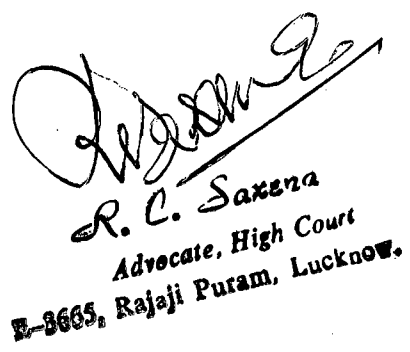 R. C. Saxena
Advocate, High Court
E-3665, Rajaji Puram, Lucknow.